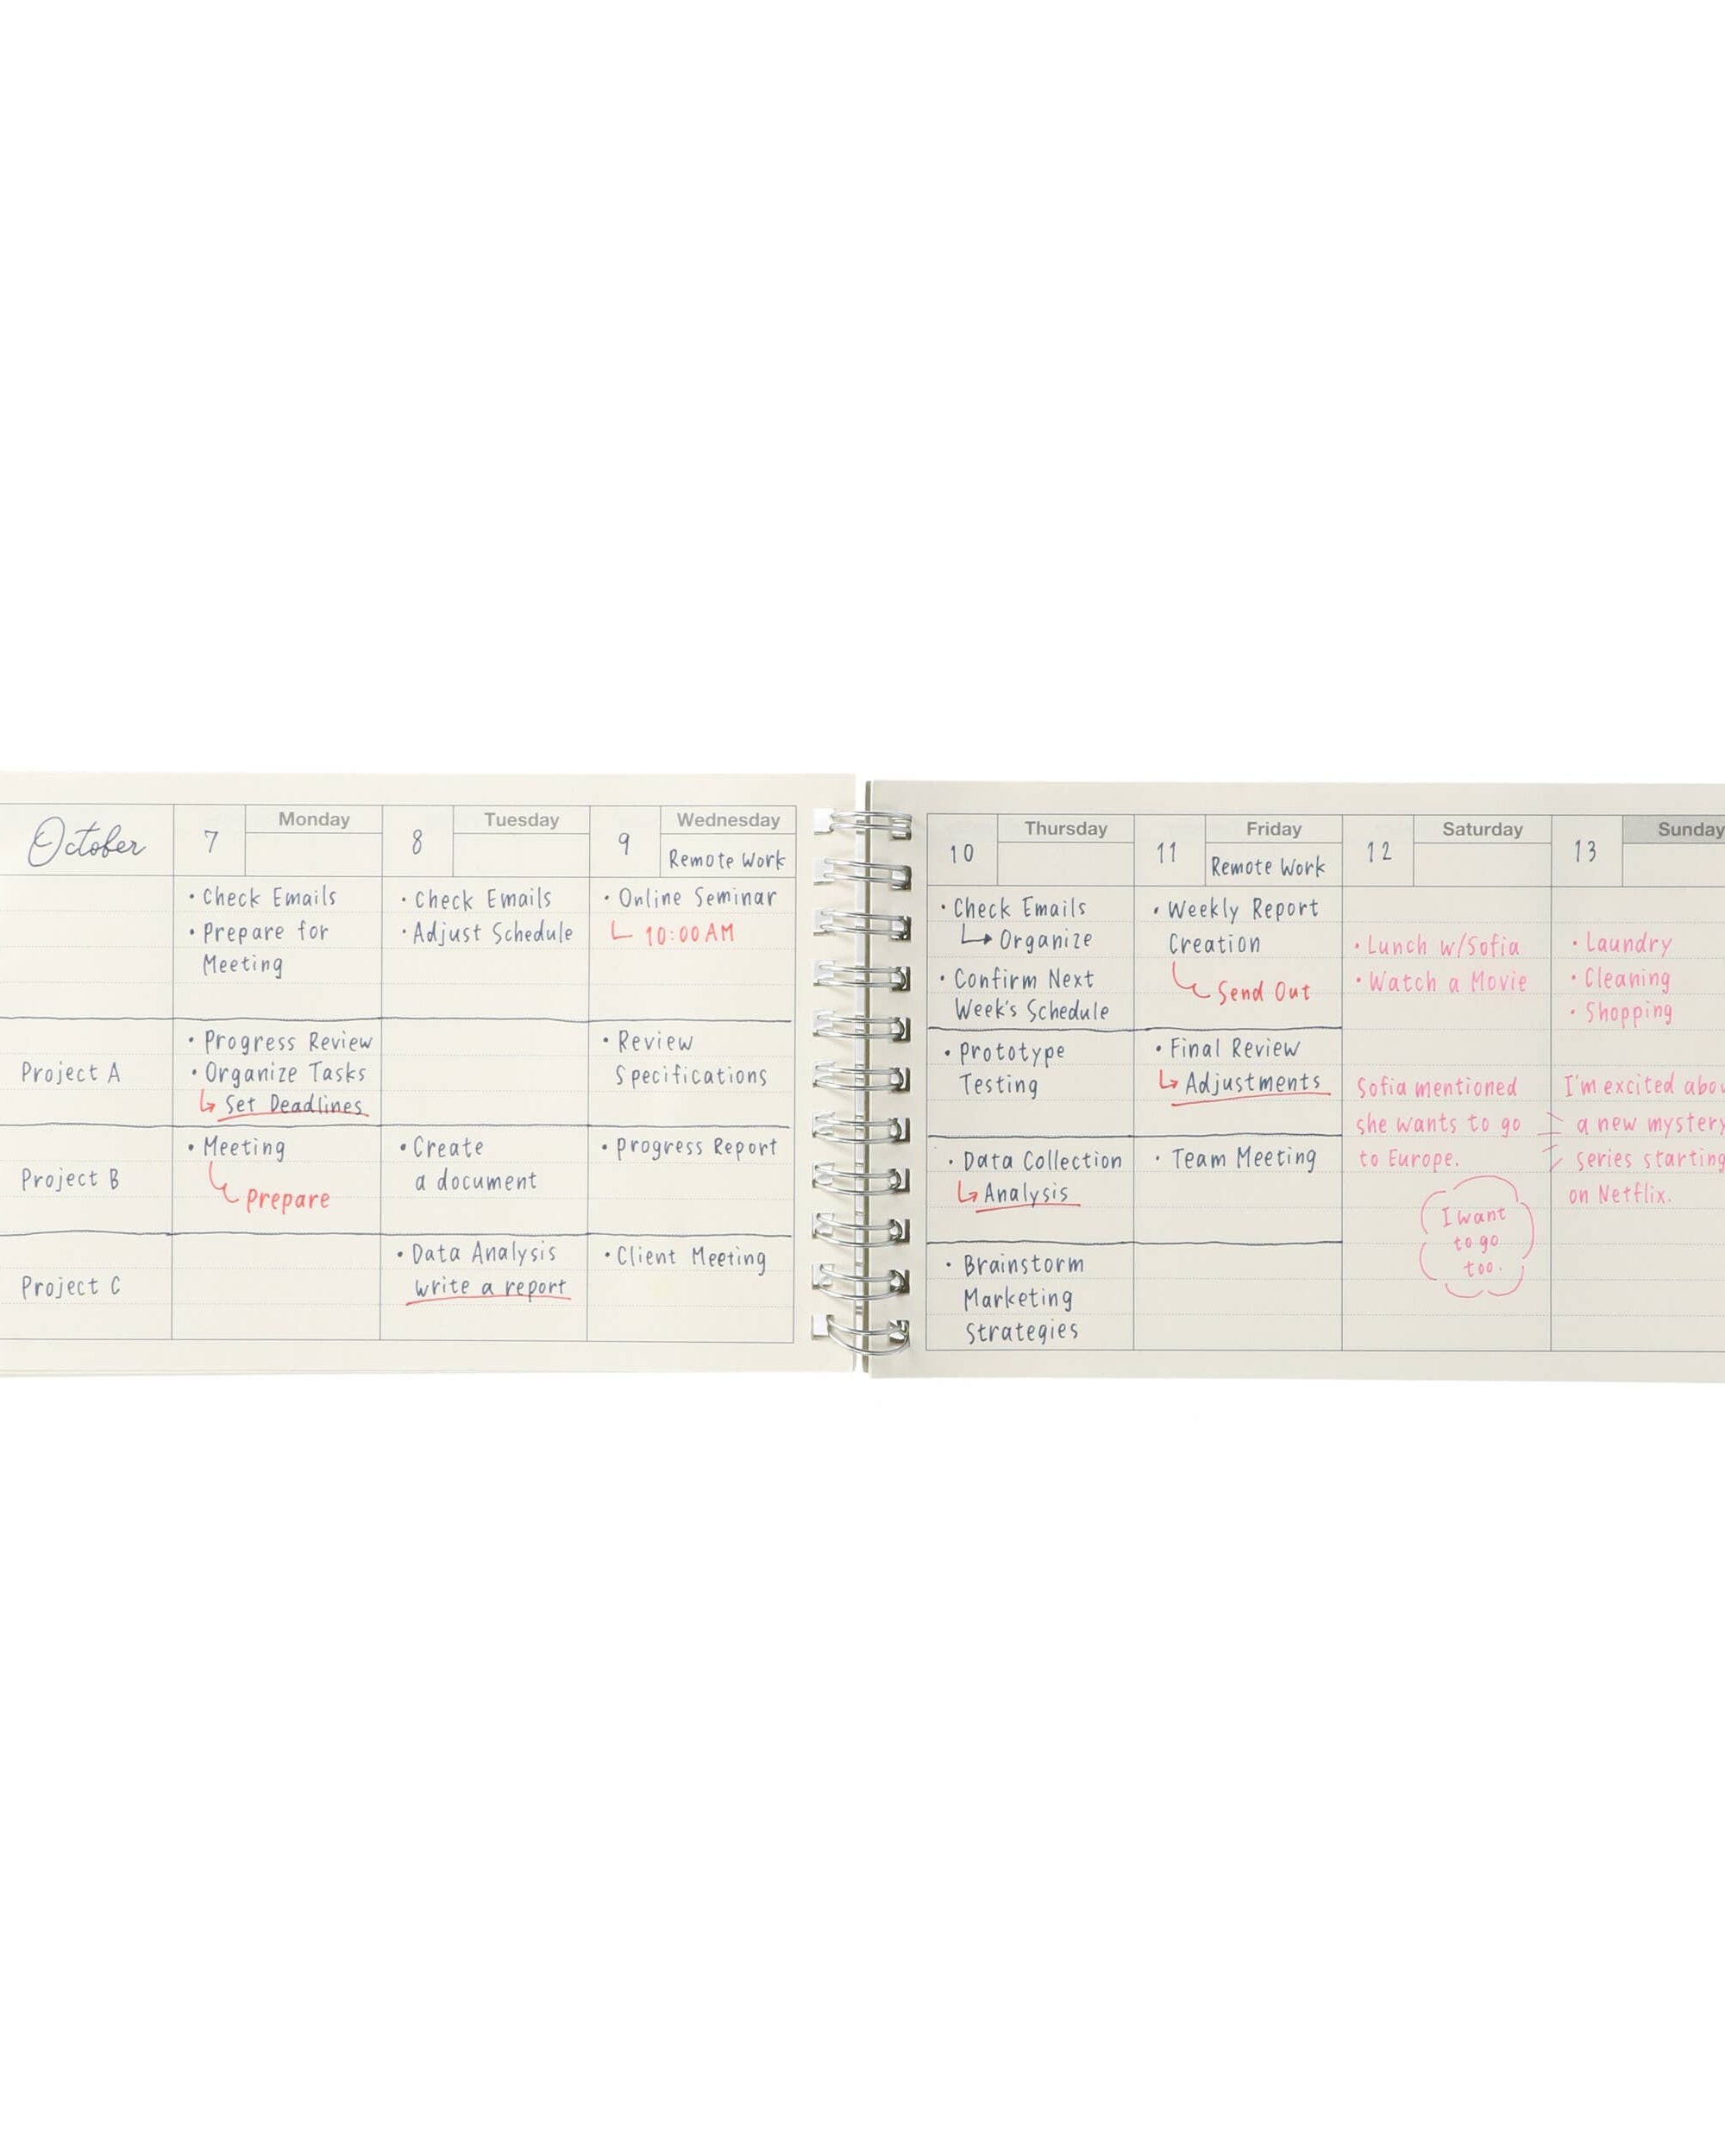 October
7
Monday
8
Tuesday
9
Wednesday
Remote Work
• Check Emails
• Prepare for
Meeting
• Check Emails
• Adjust Schedule
• Online Seminar
10:00 AM
Project A
• Progress Review
• Organize Tasks
Set Deadlines
• Review
Specifications
Project B
• Meeting
Prepare
• Create
a document
• Progress Report
Project C
• Data Analysis
write a report
• Client Meeting
10
Thursday
11
Friday
Remote Work
12
Saturday
13
Sunday
• Check Emails
Organize
• Confirm Next
Week's Schedule
• Weekly Report
Creation
Send Out
• Lunch w/Sofia
• Watch a Movie
• Laundry
• Cleaning
• Shopping
• Prototype
Testing
• Final Review
Adjustments
Sofia mentioned
she wants to go
to Europe.
I want
to go
too.
I'm excited
a new mystery
series starting
on Netflix.
• Data Collection
Analysis
• Team Meeting
• Brainstorm
Marketing
Strategies